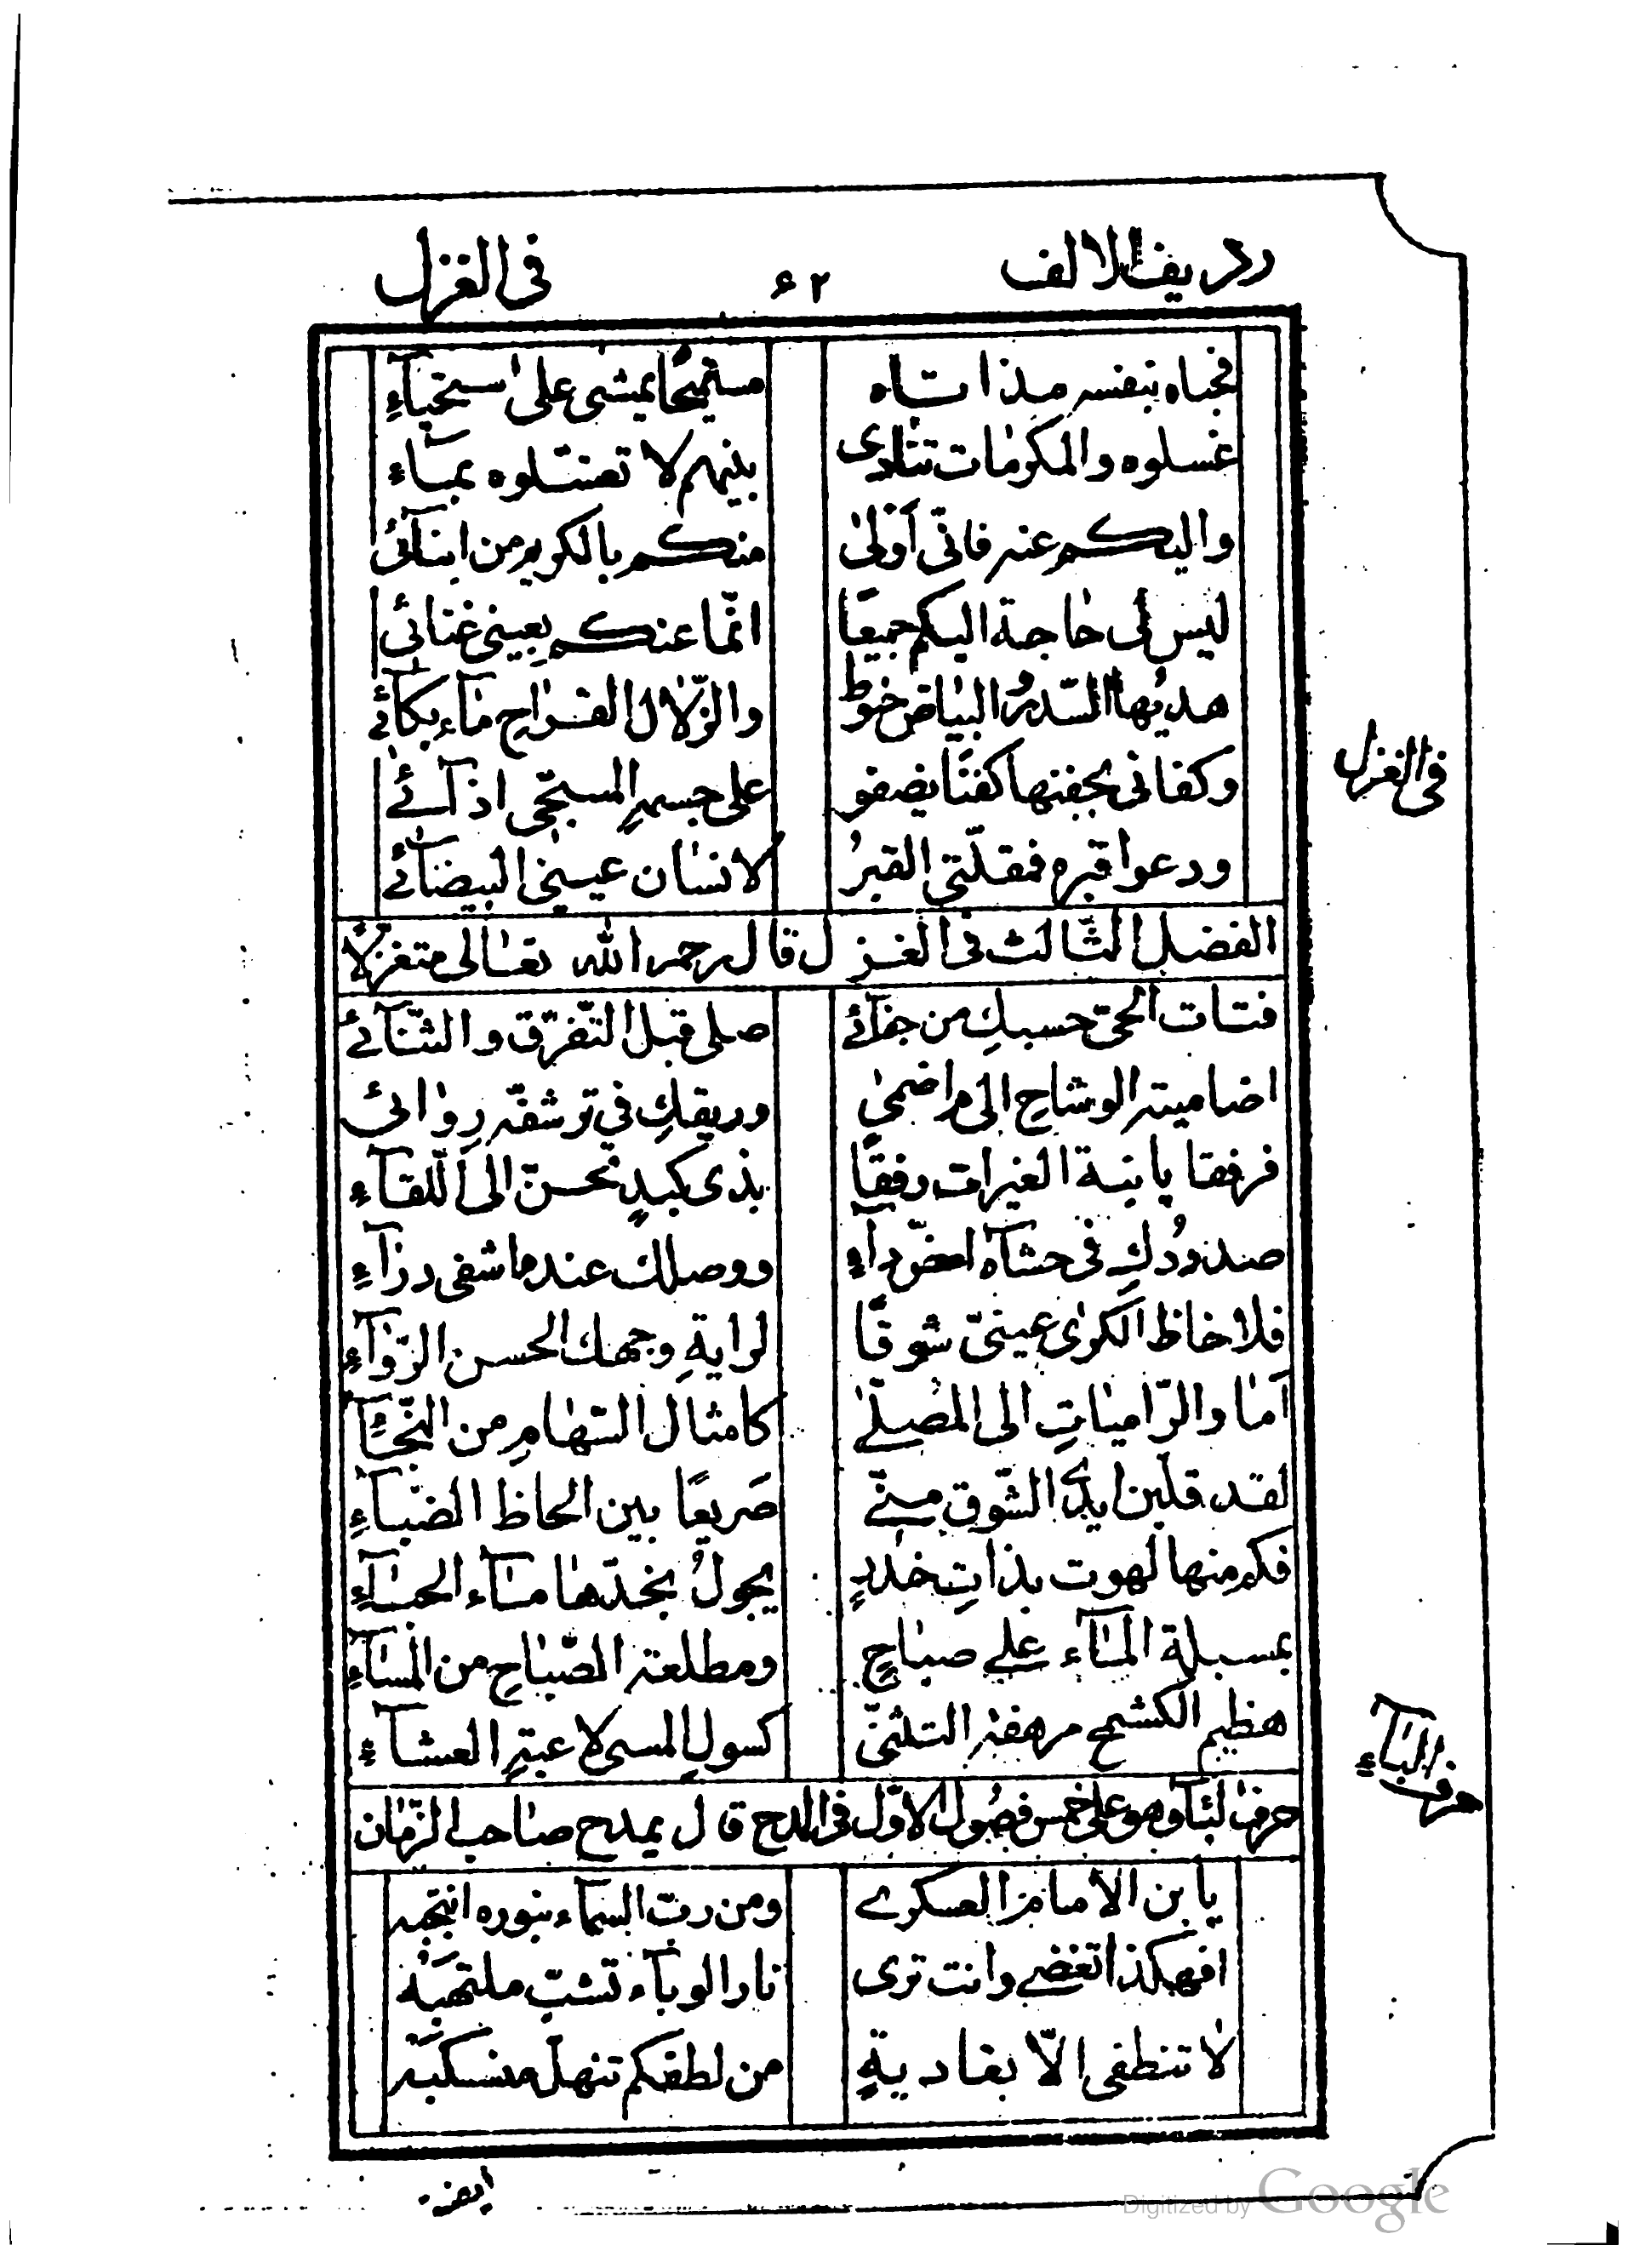 رديف الالف ۶۲ فى الغزل
فحباه بنفسه مذ اتاه مستميحًا يمشى على استحيآءِ
غسلوه والمكرمات تنادى بينهم لا تغسلوه بمآء
واليكم عنه فانّى اَوْلىٰ منكم بالكريم من ابنآئى
ليس لى حاجة اليكم جميعًا انّما عنكم بعينى غنائى
هدبُها السّدرُ البياض خيوط والزّلال القراح مآء بكآئے
وكفانى بجفنها كفنًا يضفو على جسمهِ المسجّى اذآئے
ودعوا قبره فمقلتى القبرُ لانسان عينى البيضآئے
الفصل الثّالث فى الغزل قال رحمه الله تعالى متغزلاً
فتات الحىّ حسبكِ من جفآئے صلى قبل التّفرّق والتّنآئے
اضامية الوشاح الى م اضمىٰ وريقكِ فى ترشفّه روائى
فرفقا يا بنة الغيرات رفقًا بذى كبدٍ تحسنّ الى اللّقآء
صدودُكِ فى حشآه امضّ دآءِ ووصلك عندما شفى دوآءِ
فلا خاط الكرىٰ عينىّ شوقًا لراية وجهك الحسن الرّوآءِ
اَما والرّاميات الى المصلّىٰ كامثال السّهام من النّجآ
لقد قلبن ايدى الشّوق منّے صَريعًا بين الحاظ الضبّآءِ
فكم منها لهوت بذات خدرٍ يجولُ بخدّها مآء الحيآءِ
بمسبلة المسآء على صباحٍ ومطلعة الصّباح من المسآءِ
هظيم الكشح مرهفة التثنّى كسول المسى لاعبة العشآءِ
حرف البآء وهو على خمس فصُول الاوّل فى المدح قال يمدح صاحب الزّمان
يا بن الامام العسكرے ومن ربّ السمآء بنوره انتجبه
افهكذا تغضے وانت ترى نار الوبآء تشبّ ملتهبَة
لا تنطفى الاّ بغاديةٍ من لطفكم تنهلّ منسكبَه
فى الغزل
حرف البآء
ايضه
Digitized by Google